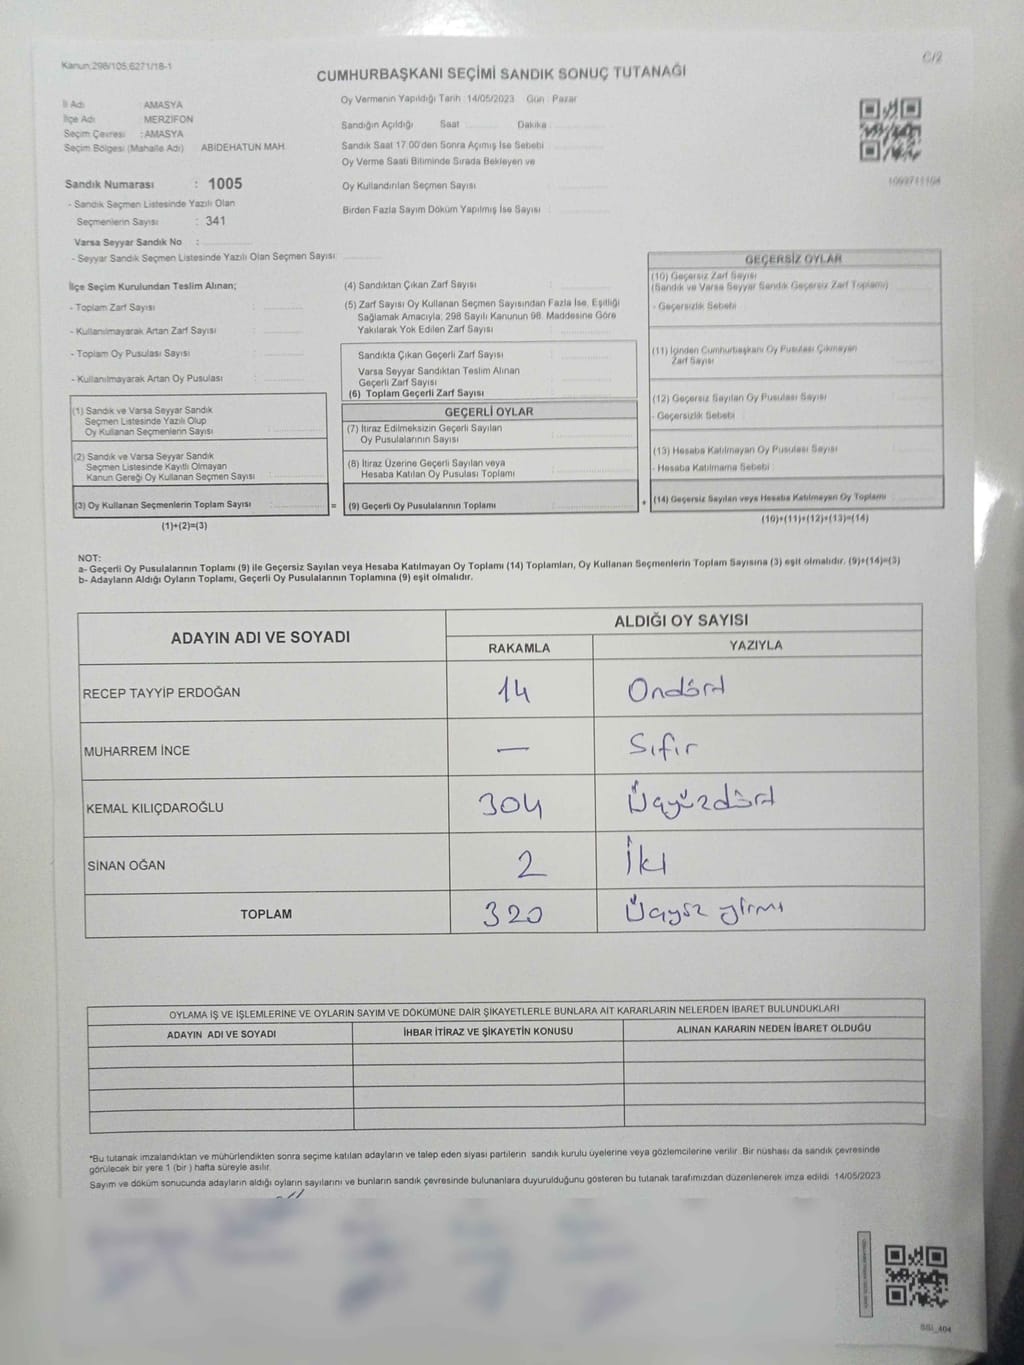 Kanun:298/105;6271/18-1
C/2
CUMHURBAŞKANI SEÇİMİ SANDIK SONUÇ TUTANAĞI
İl Adı : AMASYA
İlçe Adı : MERZİFON
Seçim Çevresi : AMASYA
Seçim Bölgesi (Mahalle Adı) ABİDEHATUN MAH.
Oy Vermenin Yapıldığı Tarih :14/05/2023 Gün : Pazar
Sandığın Açıldığı Saat Dakika
Sandık Saat 17.00'den Sonra Açılmış İse Sebebi
Oy Verme Saati Bitiminde Sırada Bekleyen ve
Oy Kullandırılan Seçmen Sayısı
Birden Fazla Sayım Döküm Yapılmış İse Sayısı
Sandık Numarası : 1005
- Sandık Seçmen Listesinde Yazılı Olan
Seçmenlerin Sayısı : 341
Varsa Seyyar Sandık No :
- Seyyar Sandık Seçmen Listesinde Yazılı Olan Seçmen Sayısı:
İlçe Seçim Kurulundan Teslim Alınan;
- Toplam Zarf Sayısı :
- Kullanılmayarak Artan Zarf Sayısı :
- Toplam Oy Pusulası Sayısı :
- Kullanılmayarak Artan Oy Pusulası :
(1) Sandık ve Varsa Seyyar Sandık
Seçmen Listesinde Yazılı Olup
Oy Kullanan Seçmenlerin Sayısı
(2) Sandık ve Varsa Seyyar Sandık
Seçmen Listesinde Kayıtlı Olmayan
Kanun Gereği Oy Kullanan Seçmen Sayısı
(3) Oy Kullanan Seçmenlerin Toplam Sayısı
(1)+(2)=(3)
(4) Sandıktan Çıkan Zarf Sayısı :
(5) Zarf Sayısı Oy Kullanan Seçmen Sayısından Fazla İse, Eşitliği
Sağlamak Amacıyla; 298 Sayılı Kanunun 98. Maddesine Göre
Yakılarak Yok Edilen Zarf Sayısı
Sandıkta Çıkan Geçerli Zarf Sayısı
Varsa Seyyar Sandıktan Teslim Alınan
Geçerli Zarf Sayısı
(6) Toplam Geçerli Zarf Sayısı
GEÇERLİ OYLAR
(7) İtiraz Edilmeksizin Geçerli Sayılan
Oy Pusulalarının Sayısı
(8) İtiraz Üzerine Geçerli Sayılan veya
Hesaba Katılan Oy Pusulası Toplamı
= (9) Geçerli Oy Pusulalarının Toplamı
GEÇERSİZ OYLAR
(10) Geçersiz Zarf Sayısı
(Sandık ve Varsa Seyyar Sandık Geçersiz Zarf Toplamı)
- Geçersizlik Sebebi
(11) İçinden Cumhurbaşkanı Oy Pusulası Çıkmayan
Zarf Sayısı
(12) Geçersiz Sayılan Oy Pusulası Sayısı
- Geçersizlik Sebebi
(13) Hesaba Katılmayan Oy Pusulası Sayısı
- Hesaba Katılmama Sebebi
+ (14) Geçersiz Sayılan veya Hesaba Katılmayan Oy Toplamı
(10)+(11)+(12)+(13)=(14)
NOT:
a- Geçerli Oy Pusulalarının Toplamı (9) ile Geçersiz Sayılan veya Hesaba Katılmayan Oy Toplamı (14) Toplamları, Oy Kullanan Seçmenlerin Toplam Sayısına (3) eşit olmalıdır. (9)+(14)=(3)
b- Adayların Aldığı Oyların Toplamı, Geçerli Oy Pusulalarının Toplamına (9) eşit olmalıdır.
ADAYIN ADI VE SOYADI
ALDIĞI OY SAYISI
RAKAMLA YAZIYLA
RECEP TAYYİP ERDOĞAN 14 Ondört
MUHARREM İNCE — Sıfır
KEMAL KILIÇDAROĞLU 304 Üçyüzdört
SİNAN OĞAN 2 İki
TOPLAM 320 Üçyüz yirmi
OYLAMA İŞ VE İŞLEMLERİNE VE OYLARIN SAYIM VE DÖKÜMÜNE DAİR ŞİKAYETLERLE BUNLARA AİT KARARLARIN NELERDEN İBARET BULUNDUKLARI
ADAYIN ADI VE SOYADI İHBAR İTİRAZ VE ŞİKAYETİN KONUSU ALINAN KARARIN NEDEN İBARET OLDUĞU
*Bu tutanak imzalandıktan ve mühürlendikten sonra seçime katılan adayların ve talep eden siyasi partilerin sandık kurulu üyelerine veya gözlemcilerine verilir. Bir nüshası da sandık çevresinde
görülecek bir yere 1 (bir ) hafta süreyle asılır.
Sayım ve döküm sonucunda adayların aldığı oyların sayılarını ve bunların sandık çevresinde bulunanlara duyurulduğunu gösteren bu tutanak tarafımızdan düzenlenerek imza edildi. 14/05/2023